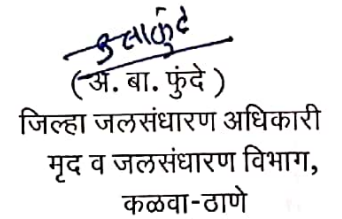 (अ. बा. फुंदे )
जिल्हा जलसंधारण अधिकारी
मृद व जलसंधारण विभाग,
कळवा-ठाणे